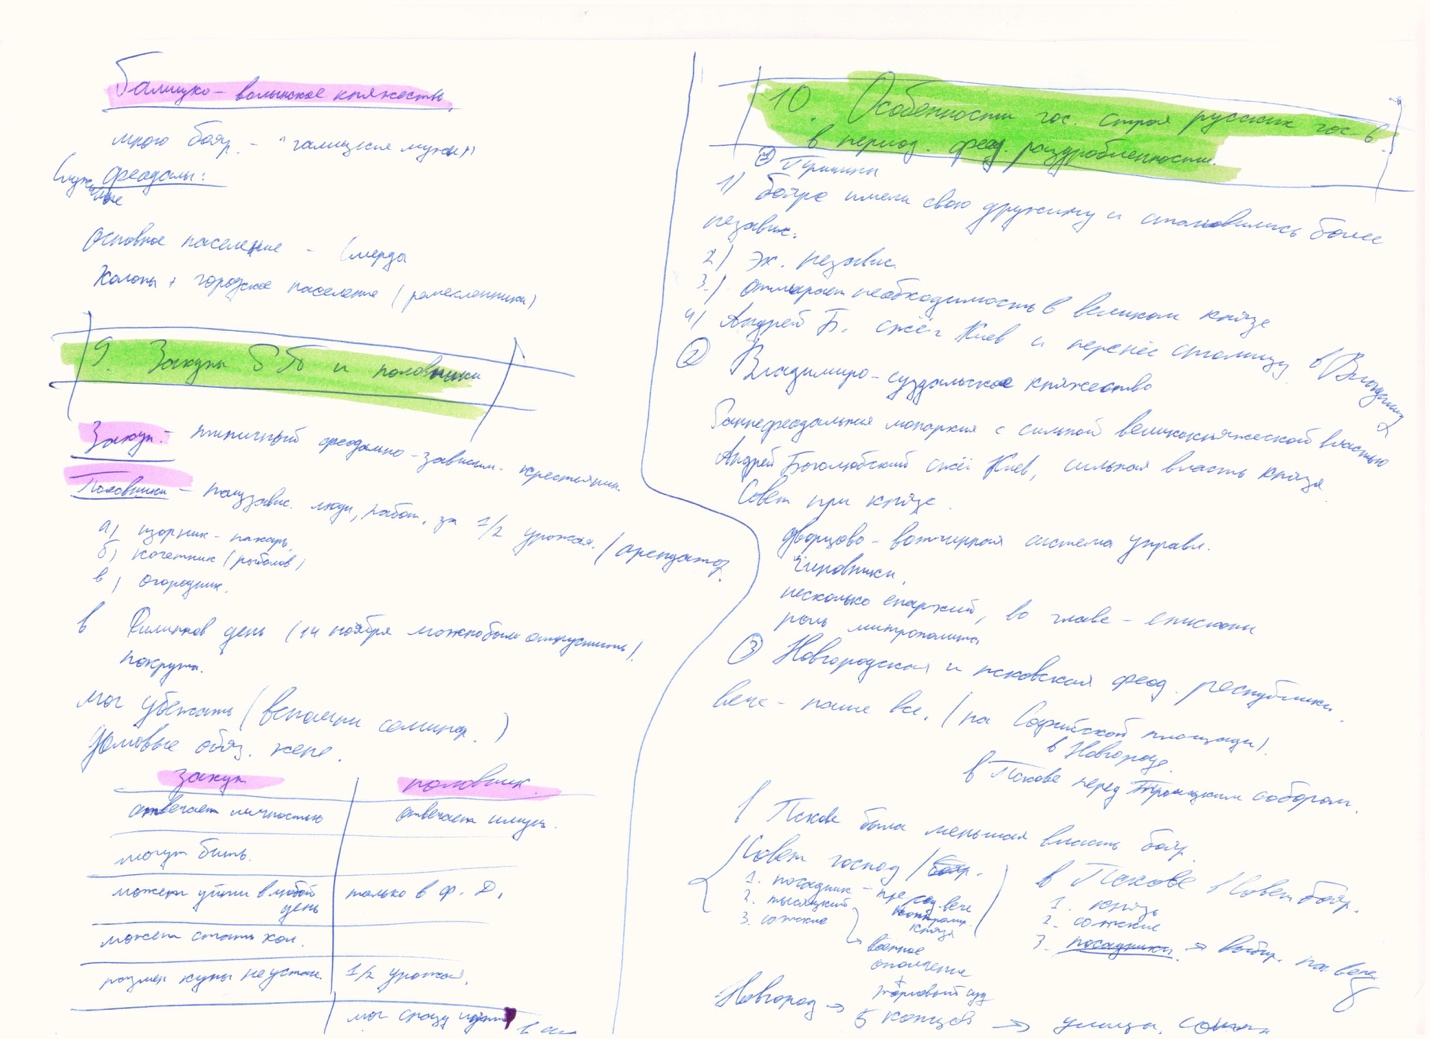 Галицко-волынское княжество.
много бояр. - "галицкие мужи"
Служилые феодалы:
Основное население - смерды
Холопы + городское население (ремесленники)
9. Закупы и половники
Закуп - типичный феодально-зависим. крестьянин.
Половники - позд. завис. люди, работ. за 1/2 урожая. (арендатор
а) изорник - пахарь,
б) кочетник (рыболов)
в) огородник.
в Филиппов день (14 ноября можно было отпустить).
покрута.
мог убежать (вспомни семинар.)
Долговые обяз. жене.
закуп половник.
отвечает личностью отвечает имущ.
могут бить.
может уйти в любой день только в Ф. Д.
может стать хол.
размер купы не устан. 1/2 урожая.
мог сразу
10. Особенности гос. строя русских гос. в
в период. феод. раздробленности.
① Причины
1) бояре имели свою дружину и становились более
независ.
2) Эк. независ.
3) отмирает необходимость в великом князе
4) Андрей Б. сжёг Киев и перенёс столицу в Владимир
② Владимиро-суздальское княжество
Раннефеодальная монархия с сильной великокняжеской властью
Андрей Боголюбский сжёг Киев, сильная власть князя.
Совет при князе.
дворцово-вотчинная система управл.
чиновники,
несколько епархий, во главе - епископы
роль митрополита
③ Новгородская и псковская феод. республики.
вече - наше все. (на Софийской площади).
в Новгороде.
в Пскове перед Троицким собором.
В Пскове была меньшая власть бояр.
Совет господ
1. посадник - пред. вече
контроль князя
2. тысяцкий
3. сотские
военное
ополчение
торговый суд
в Пскове Совет бояр.
1. князь
2. сотские
3. посадники. → выбир. на вече
Новгород → 5 концов → улицы, сотни